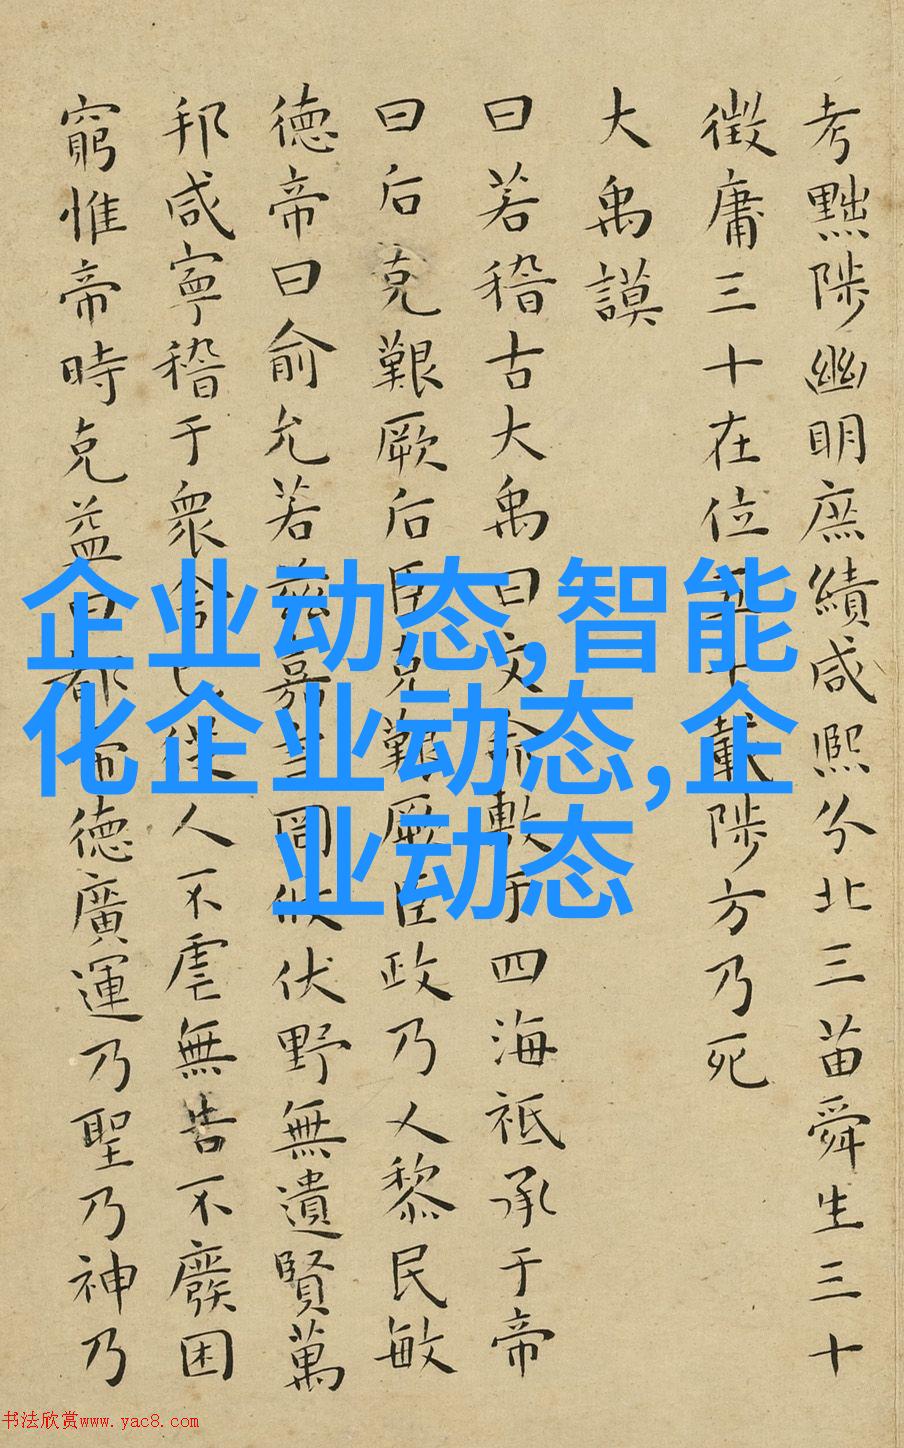 考黜陟幽明庶績咸熙分北三苗舜生三十
徵庸三十在位五十載陟方乃死
大禹謨
曰若稽古大禹曰文命敷于四海祗承于帝
曰后克艱厥后臣克艱厥臣政乃乂黎民敏
德帝曰俞允若茲嘉言罔攸伏野無遺賢萬
邦咸寧稽于衆舍己從人不虐無告不廢困
窮惟帝時克益曰都帝德廣運乃聖乃神乃
企业动态,智能
化企业动态,企
业动态
书法欣赏www.yac8.com